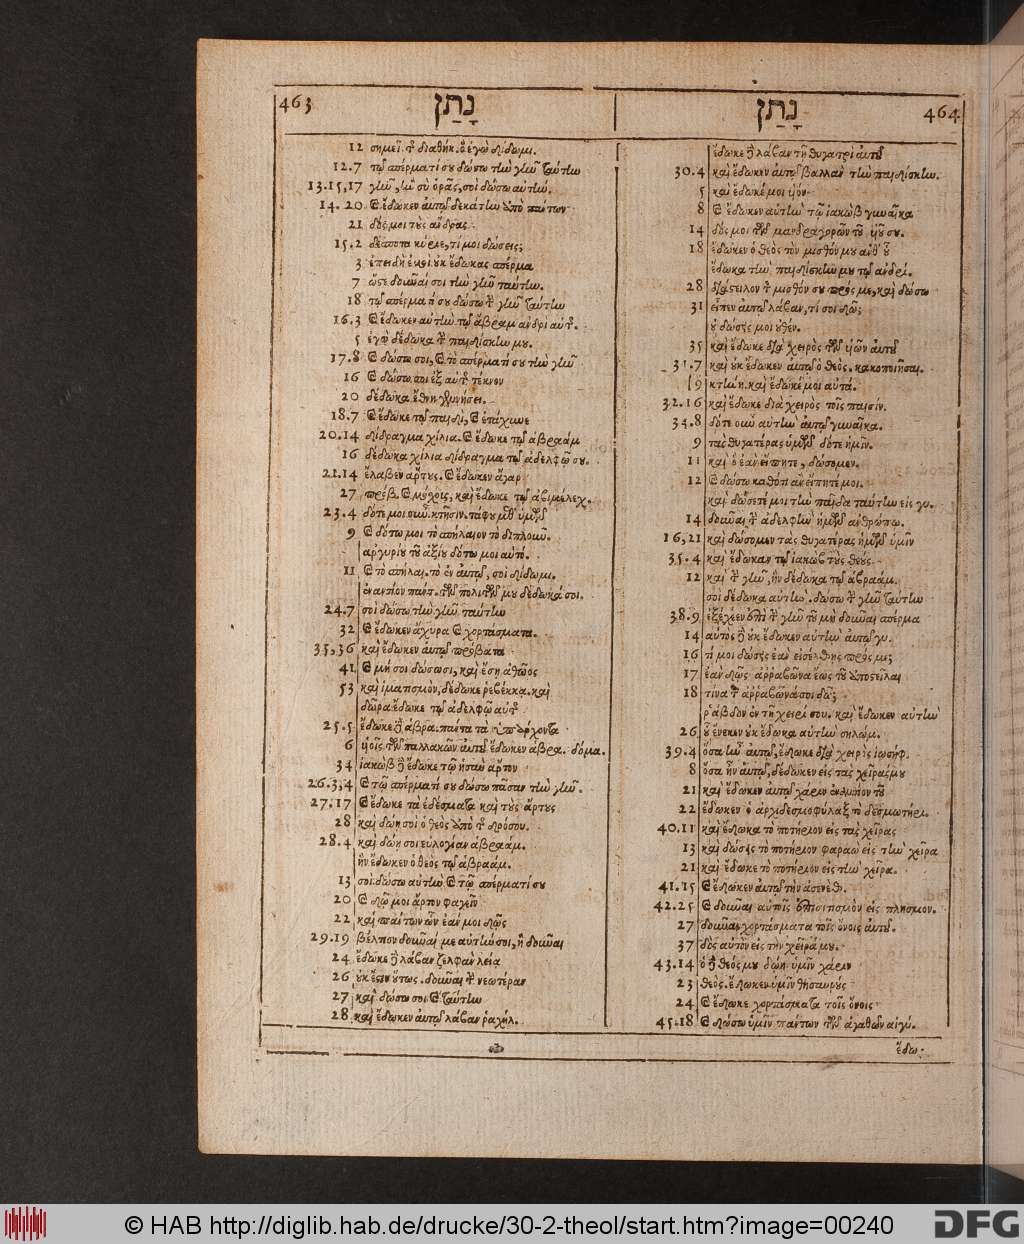 463 נָתַן נָתַן 464
12 σημεῖ. τ͂ διαθήκ. ὃ ἐγὼ δίδωμι.
12.7 τῷ σπέρματί σου δώσω τὴν γῆν ταύτην
13.15,17 γῆν, ἣν σὺ ὁρᾷς, σοὶ δώσω αὐτὴν.
14.20 καὶ ἔδωκεν αὐτῷ δεκάτην ἀπὸ πάντων
21 δός μοι τοὺς ἄνδρας.
15.2 δέσποτα κύριε, τί μοι δώσεις;
3 ἐπειδὴ ἐμοὶ οὐκ ἔδωκας σπέρμα
7 ὥστε δοῦναί σοι τὴν γῆν ταύτην.
18 τῷ σπέρματί σου δώσω τ͂ γῆν ταύτην
16.3 καὶ ἔδωκεν αὐτὴν τῷ ἅβραμ ἀνδρὶ αὐτ͂.
5 ἐγὼ δέδωκα τ͂ παιδίσκην μου.
17.8 καὶ δώσω σοι, καὶ τὸ σπέρματί σου τὴν γῆν
16 καὶ δώσω σοι ἐξ αὐτ͂ τέκνον
20 δέδωκα ἔθνη γεννήσει.
18.7 καὶ ἔδωκε τῷ παιδὶ, καὶ ἐτάχυνε
20.14 δίδραγμα χίλια. καὶ ἔδωκε τῷ ἁβραάμ
16 δέδωκα χίλια δίδραγμα τῷ ἀδελφῷ σου.
21.14 ἔλαβεν ἄρτους. καὶ ἔδωκεν ἄγαρ
27 πρόβ. καὶ μόχοις, καὶ ἔδωκε τῷ ἀβιμέλεχ.
23.4 δότε μοι οὖν. κτῆσιν. τάφου μεθ᾽ ὑμῶν
9 καὶ δότω μοι τὸ σπήλαιον τὸ διπλοῦν.
ἀργυρίου τοῦ ἀξίου δότω μοι αὐτό.
11 καὶ τὸ σπήλαι. τὸ ἐν αὐτῷ, σοὶ δίδωμι.
ἐναντίον πάντ. τῶν πολιτῶν μου δέδωκά σοι.
24.7 σοὶ δώσω τὴν γῆν ταύτην
32 καὶ ἔδωκεν ἄχυρα καὶ χορτάσματα.
35,36 καὶ ἔδωκεν αὐτῷ πρόβατα
41 καὶ μή σοι δώσωσι, καὶ ἔσῃ ἀθῶος
53 καὶ ἱματισμὸν, δέδωκε ῥεβέκκα. καὶ
δῶρα ἔδωκε τῷ ἀδελφῷ αὐτ͂
25.5 ἔδωκε δὲ ἅβρα. πάντα τὰ ὑπάρχοντα
6 υἱοῖς τῶν παλλακῶν αὐτοῦ ἔδωκεν ἅβρα. δόμα.
34 ἰακὼβ δὲ ἔδωκε τῷ ἡσαῦ ἄρτον
26.3,4 καὶ τῷ σπέρματί σου δώσω πᾶσαν τὴν γῆν.
27.17 καὶ ἔδωκε τὰ ἐδέσματα καὶ τοὺς ἄρτους
28 καὶ δώῃ σοὶ ὁ θεὸς ἀπὸ τ͂ δρόσου.
28.4 καὶ δώῃ σοι εὐλογίαν ἁβραάμ.
ἣν ἔδωκεν ὁ θεὸς τῷ ἁβραάμ.
13 σοὶ δώσω αὐτὴν καὶ τῷ σπέρματί σου
20 καὶ δῷ μοι ἄρτον φαγεῖν
22 καὶ πάντων ὧν ἐάν μοι δῷς
29.19 βέλτιον δοῦναί με αὐτήν σοι, ἢ δοῦναι
24 ἔδωκε δὲ λάβαν ζελφὰν λεία
26 οὐκ ἔστιν οὕτως. δοῦναι τ͂ νεωτέραν
27 καὶ δώσω σοι καὶ ταύτην
28 καὶ ἔδωκεν αὐτῷ λάβαν ῥαχήλ.
ἔδωκε δὲ λάβαν τῇ θυγατρὶ αὐτοῦ
30.4 καὶ ἔδωκεν αὐτῷ βαλλὰν τὴν παιδίσκην.
5 καὶ ἔδωκέ μοι υἱόν
8 καὶ ἔδωκεν αὐτὴν τῷ ἰακὼβ γυναῖκα
14 δός μοι τῶν μανδραγορῶν τοῦ υἱοῦ σου.
18 ἔδωκεν ὁ θεὸς τὸν μισθόν μου ἀνθ᾽ οὗ
ἔδωκα τὴν παιδίσκην μου τῷ ἀνδρί.
28 διάστειλον τ͂ μισθόν σου πρός με, καὶ δώσω
31 εἶπεν αὐτῷ λάβαν, τί σοι δῶ;
οὐ δώσεις μοι οὐθέν.
35 καὶ ἔδωκε διὰ χειρὸς τῶν υἱῶν αὐτοῦ
31.7 καὶ οὐκ ἔδωκεν αὐτῷ ὁ θεὸς. κακοποιῆσαι.
9 κτήνη. καὶ ἔδωκέ μοι αὐτά.
32.16 καὶ ἔδωκε διὰ χειρὸς τοῖς παισίν.
34.8 δότε οὖν αὐτὴν αὐτῷ γυναῖκα.
9 τὰς θυγατέρας ὑμῶν δότε ἡμῖν.
11 καὶ ὃ ἐὰν εἴπητε, δώσομεν.
12 καὶ δώσω καθότι ἂν εἴπητέ μοι.
καὶ δώσετέ μοι τὴν παῖδα ταύτην εἰς γυ.
14 δοῦναι τ͂ ἀδελφὴν ἡμῶν ἀνθρώπῳ.
16,21 καὶ δώσομεν τὰς θυγατέρας ἡμῶν ὑμῖν
35.4 καὶ ἔδωκαν τῷ ἰακὼβ τοὺς θεούς.
12 καὶ τ͂ γῆν, ἣν δέδωκα τῷ ἀβραάμ.
σοὶ δέδωκα αὐτὴν. δώσω τ͂ γῆν ταύτην
38.9 ἐξέχεεν ἐπὶ τ͂ γῆν τοῦ μὴ δοῦναι σπέρμα
14 αὐτὸς δὲ οὐκ ἔδωκεν αὐτὴν αὐτῷ γυ.
16 τί μοι δώσεις ἐὰν εἰσέλθῃς πρός με;
17 ἐὰν δῷς ἀρραβῶνα ἕως τοῦ ἀποστεῖλαι
18 τίνα τ͂ ἀρραβῶνά σοι δῶ;
ῥάβδον ἐν τῇ χειρί σου. καὶ ἔδωκεν αὐτὴν
26 οὗ ἕνεκεν οὐκ ἔδωκα αὐτὴν σηλώμ.
39.4 ὅσα ἦν αὐτῷ, ἔδωκε διὰ χειρὸς ἰωσήφ.
8 ὅσα ἦν αὐτῷ, δέδωκεν εἰς τὰς χεῖράς μου
21 καὶ ἔδωκεν αὐτῷ χάριν ἐναντίον τοῦ
22 ἔδωκεν ὁ ἀρχιδεσμοφύλαξ τὸ δεσμωτήρι.
40.11 καὶ ἔδωκα τὸ ποτήριον εἰς τὰς χεῖρας
13 καὶ δώσεις τὸ ποτήριον φαραὼ εἰς τὴν χεῖρα
21 καὶ ἔδωκε τὸ ποτήριον εἰς τὴν χεῖρα.
41.15 καὶ ἔδωκεν αὐτῷ τὴν ἀσενὲθ.
42.25 καὶ δοῦναι αὐτοῖς ἐπισιτισμὸν εἰς πλησμον.
27 δοῦναι χορτάσματα τοῖς ὄνοις αὐτοῦ.
37 δὸς αὐτὸν εἰς τὴν χεῖρά μου.
43.14 ὁ δὲ θεός μου δώῃ ὑμῖν χάριν
23 θεὸς. ἔδωκεν ὑμῖν θησαυρούς
24 καὶ ἔδωκε χορτάσματα τοῖς ὄνοις
45.18 καὶ δώσω ὑμῖν πάντων τῶν ἀγαθῶν αἰγύ.
ἔδω.
© HAB http://diglib.hab.de/drucke/30-2-theol/start.htm?image=00240 DFG